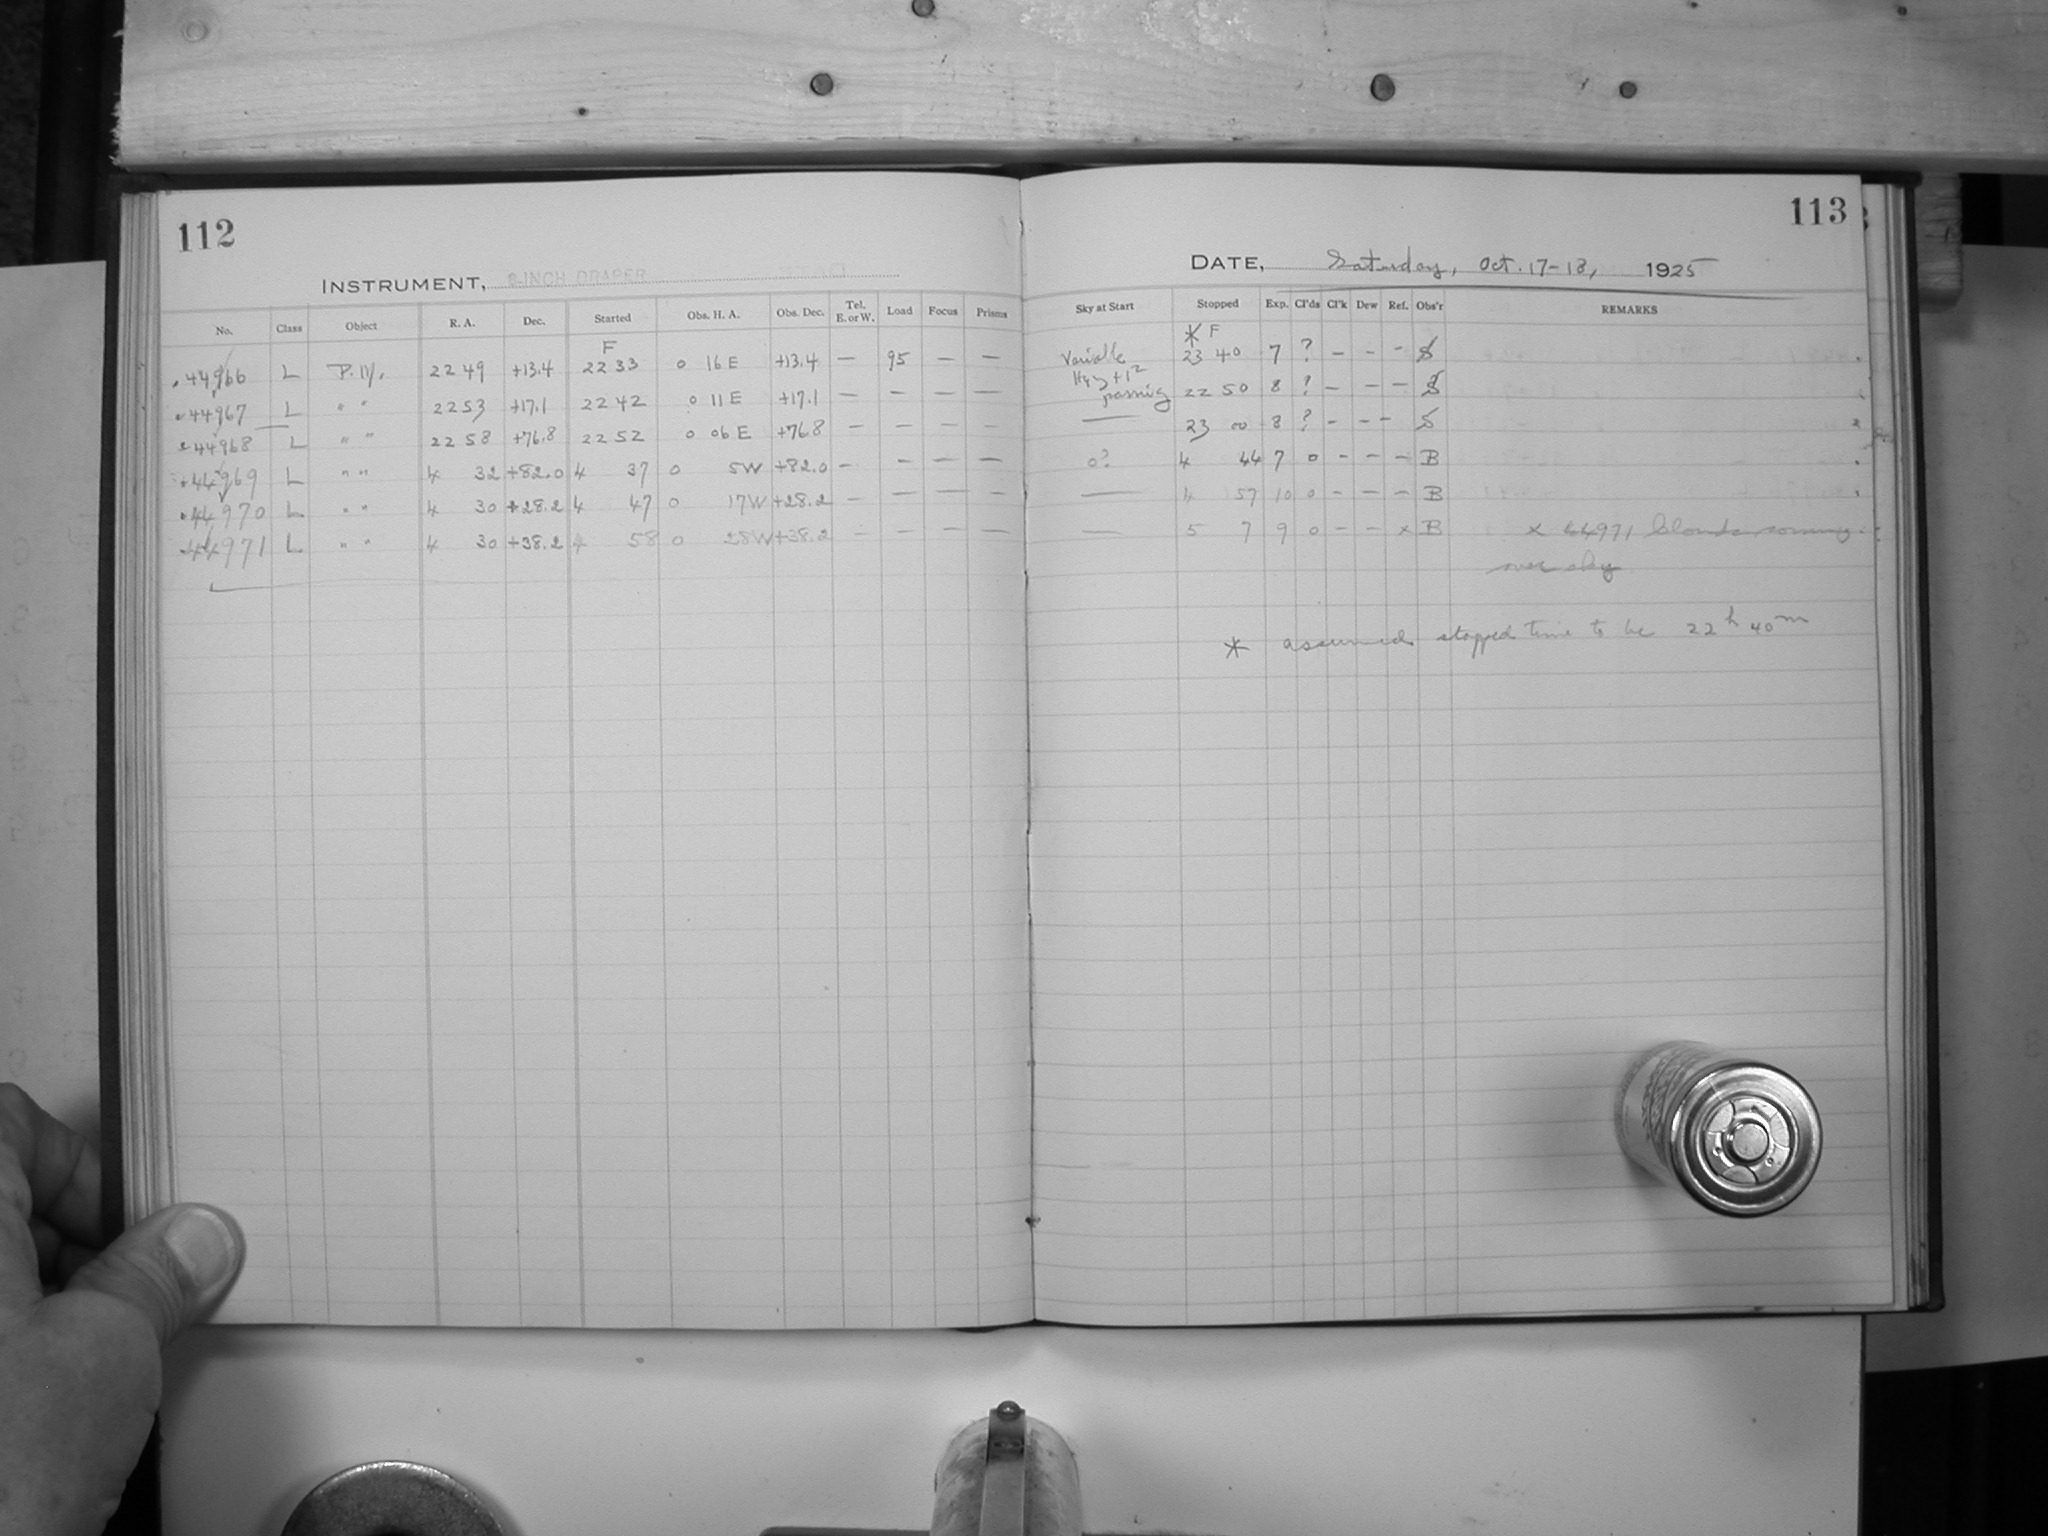 112
INSTRUMENT, 8-INCH DRAPER
No. Class Object R. A. Dec. Started Obs. H. A. Obs. Dec. Tel. E. or W. Load Focus Prisms
F
44966 L 22 49 +13.4 22 33 0 16 E +13.4 — 95 — —
44967 L " " 22 53 +17.1 22 42 0 11 E +17.1 — — — —
44968 L " " 22 58 +76.8 22 52 0 06 E +76.8 — — — —
44969 L " " 4 32 +82.0 4 37 0 5W +82.0 — — — —
44970 L " " 4 30 +28.2 4 47 0 17W +28.2 — — — —
44971 L " " 4 30 +38.2 4 58 0 28W +38.2 — — — —
113
DATE, Saturday, Oct. 17-18, 1925
Sky at Start Stopped Exp. Cl'ds Cl'k Dew Ref. Obs'r REMARKS
* F
Variable 23 40 7 ? — — — S
passing 22 50 8 ? — — — S
— 23 00 8 ? — — — S
0? 4 44 7 0 — — — B
— 4 57 10 0 — — — B
— 5 7 9 0 — — x B x 44971 Clouds coming
over sky
* assumed stopped time to be 22h 40m